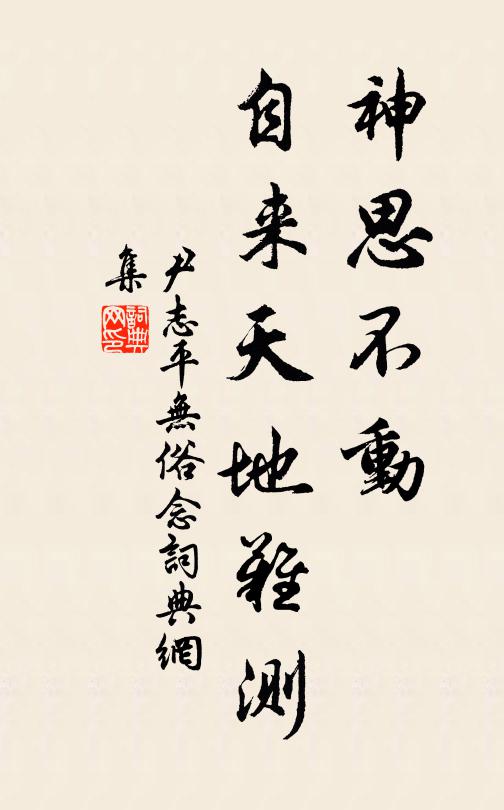 神思不動
自来天地難測
尹志平無俗念詞典網
集
詞典
网印